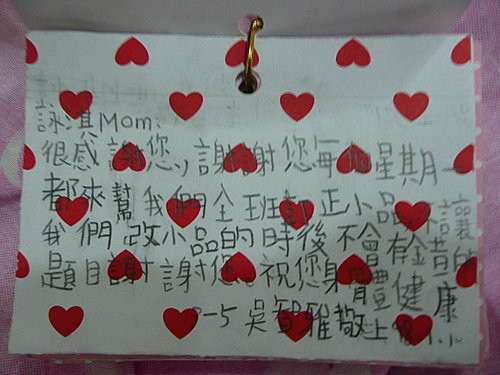 詠淇Mom:
很感謝您,謝謝您每個星期一
都來幫我們全班訂正小品,讓
我們改小品的時後不會有錯的
題目謝謝您,祝您身體健康
吳智雅敬上